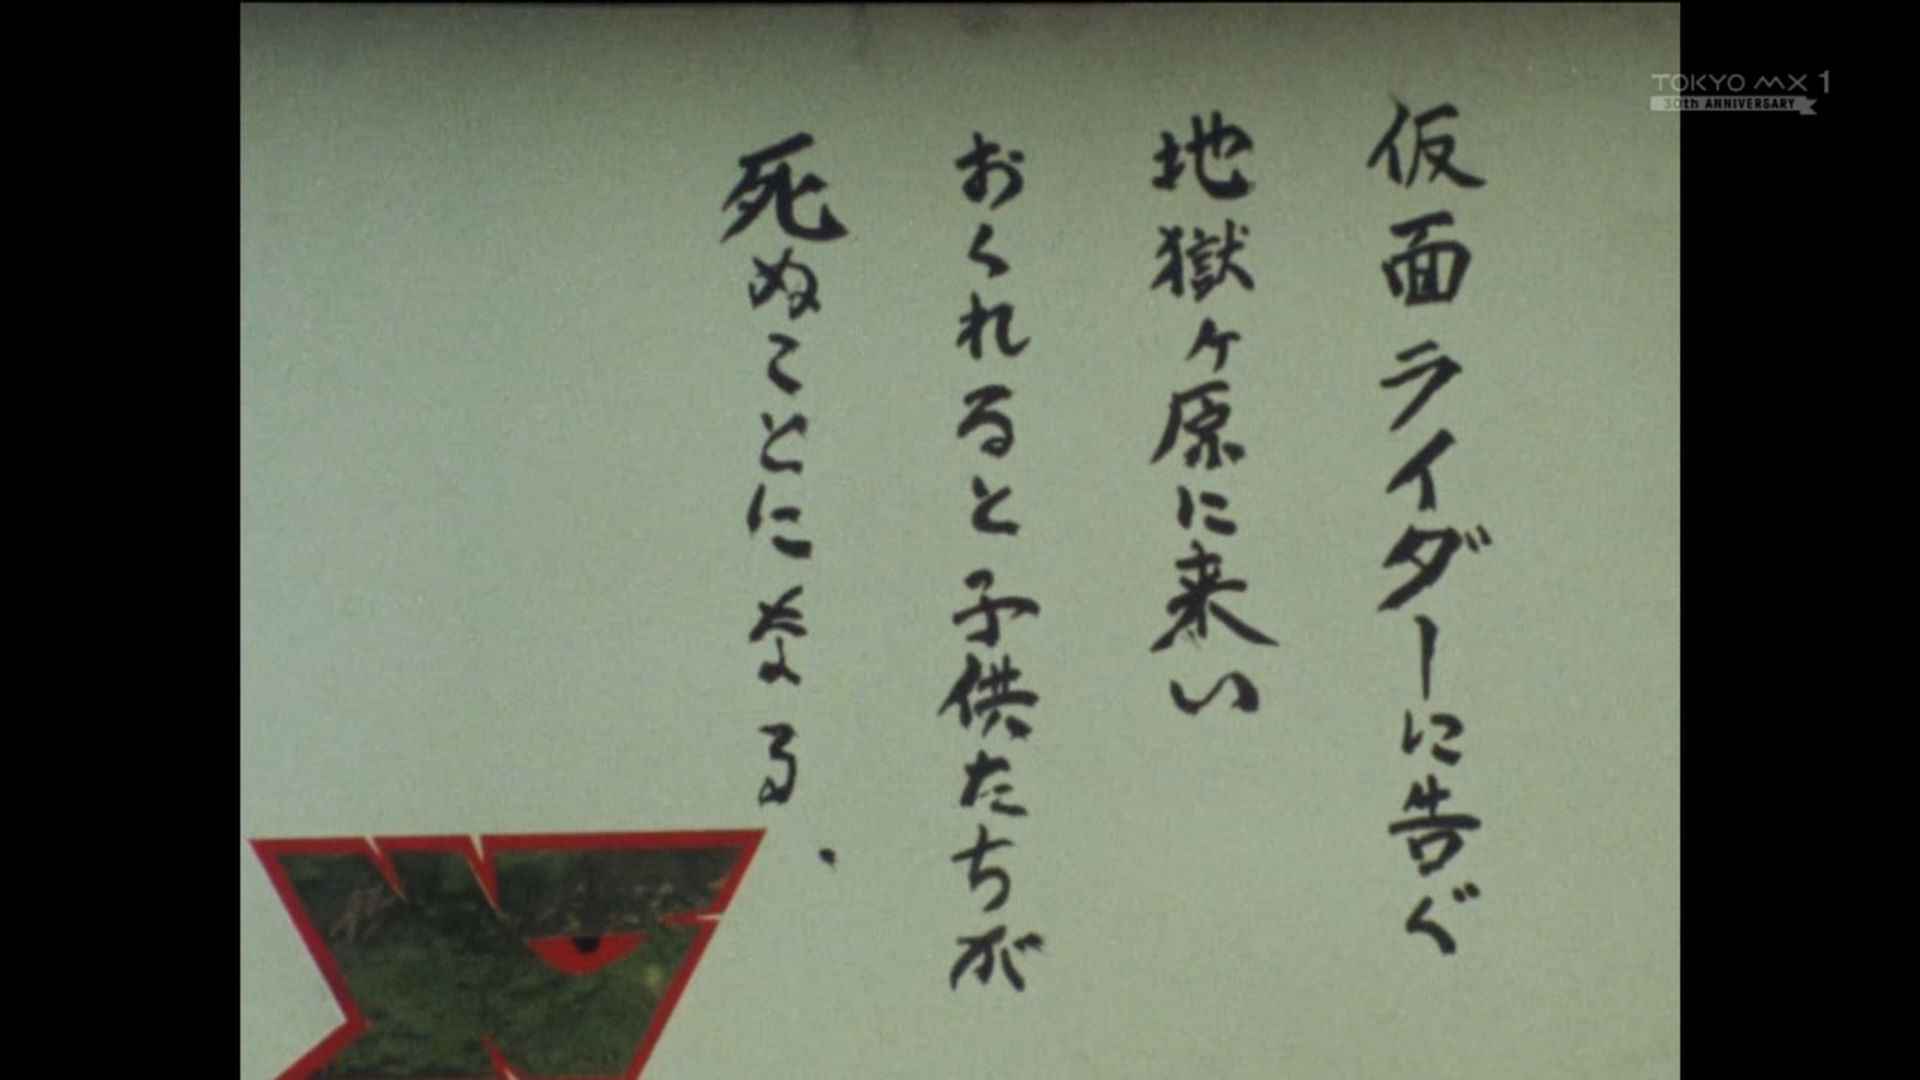 仮面ライダーに告ぐ
地獄ヶ原に来い
おくれると子供たちが
死ぬことになる.
TOKYO MX 1
30th ANNIVERSARY